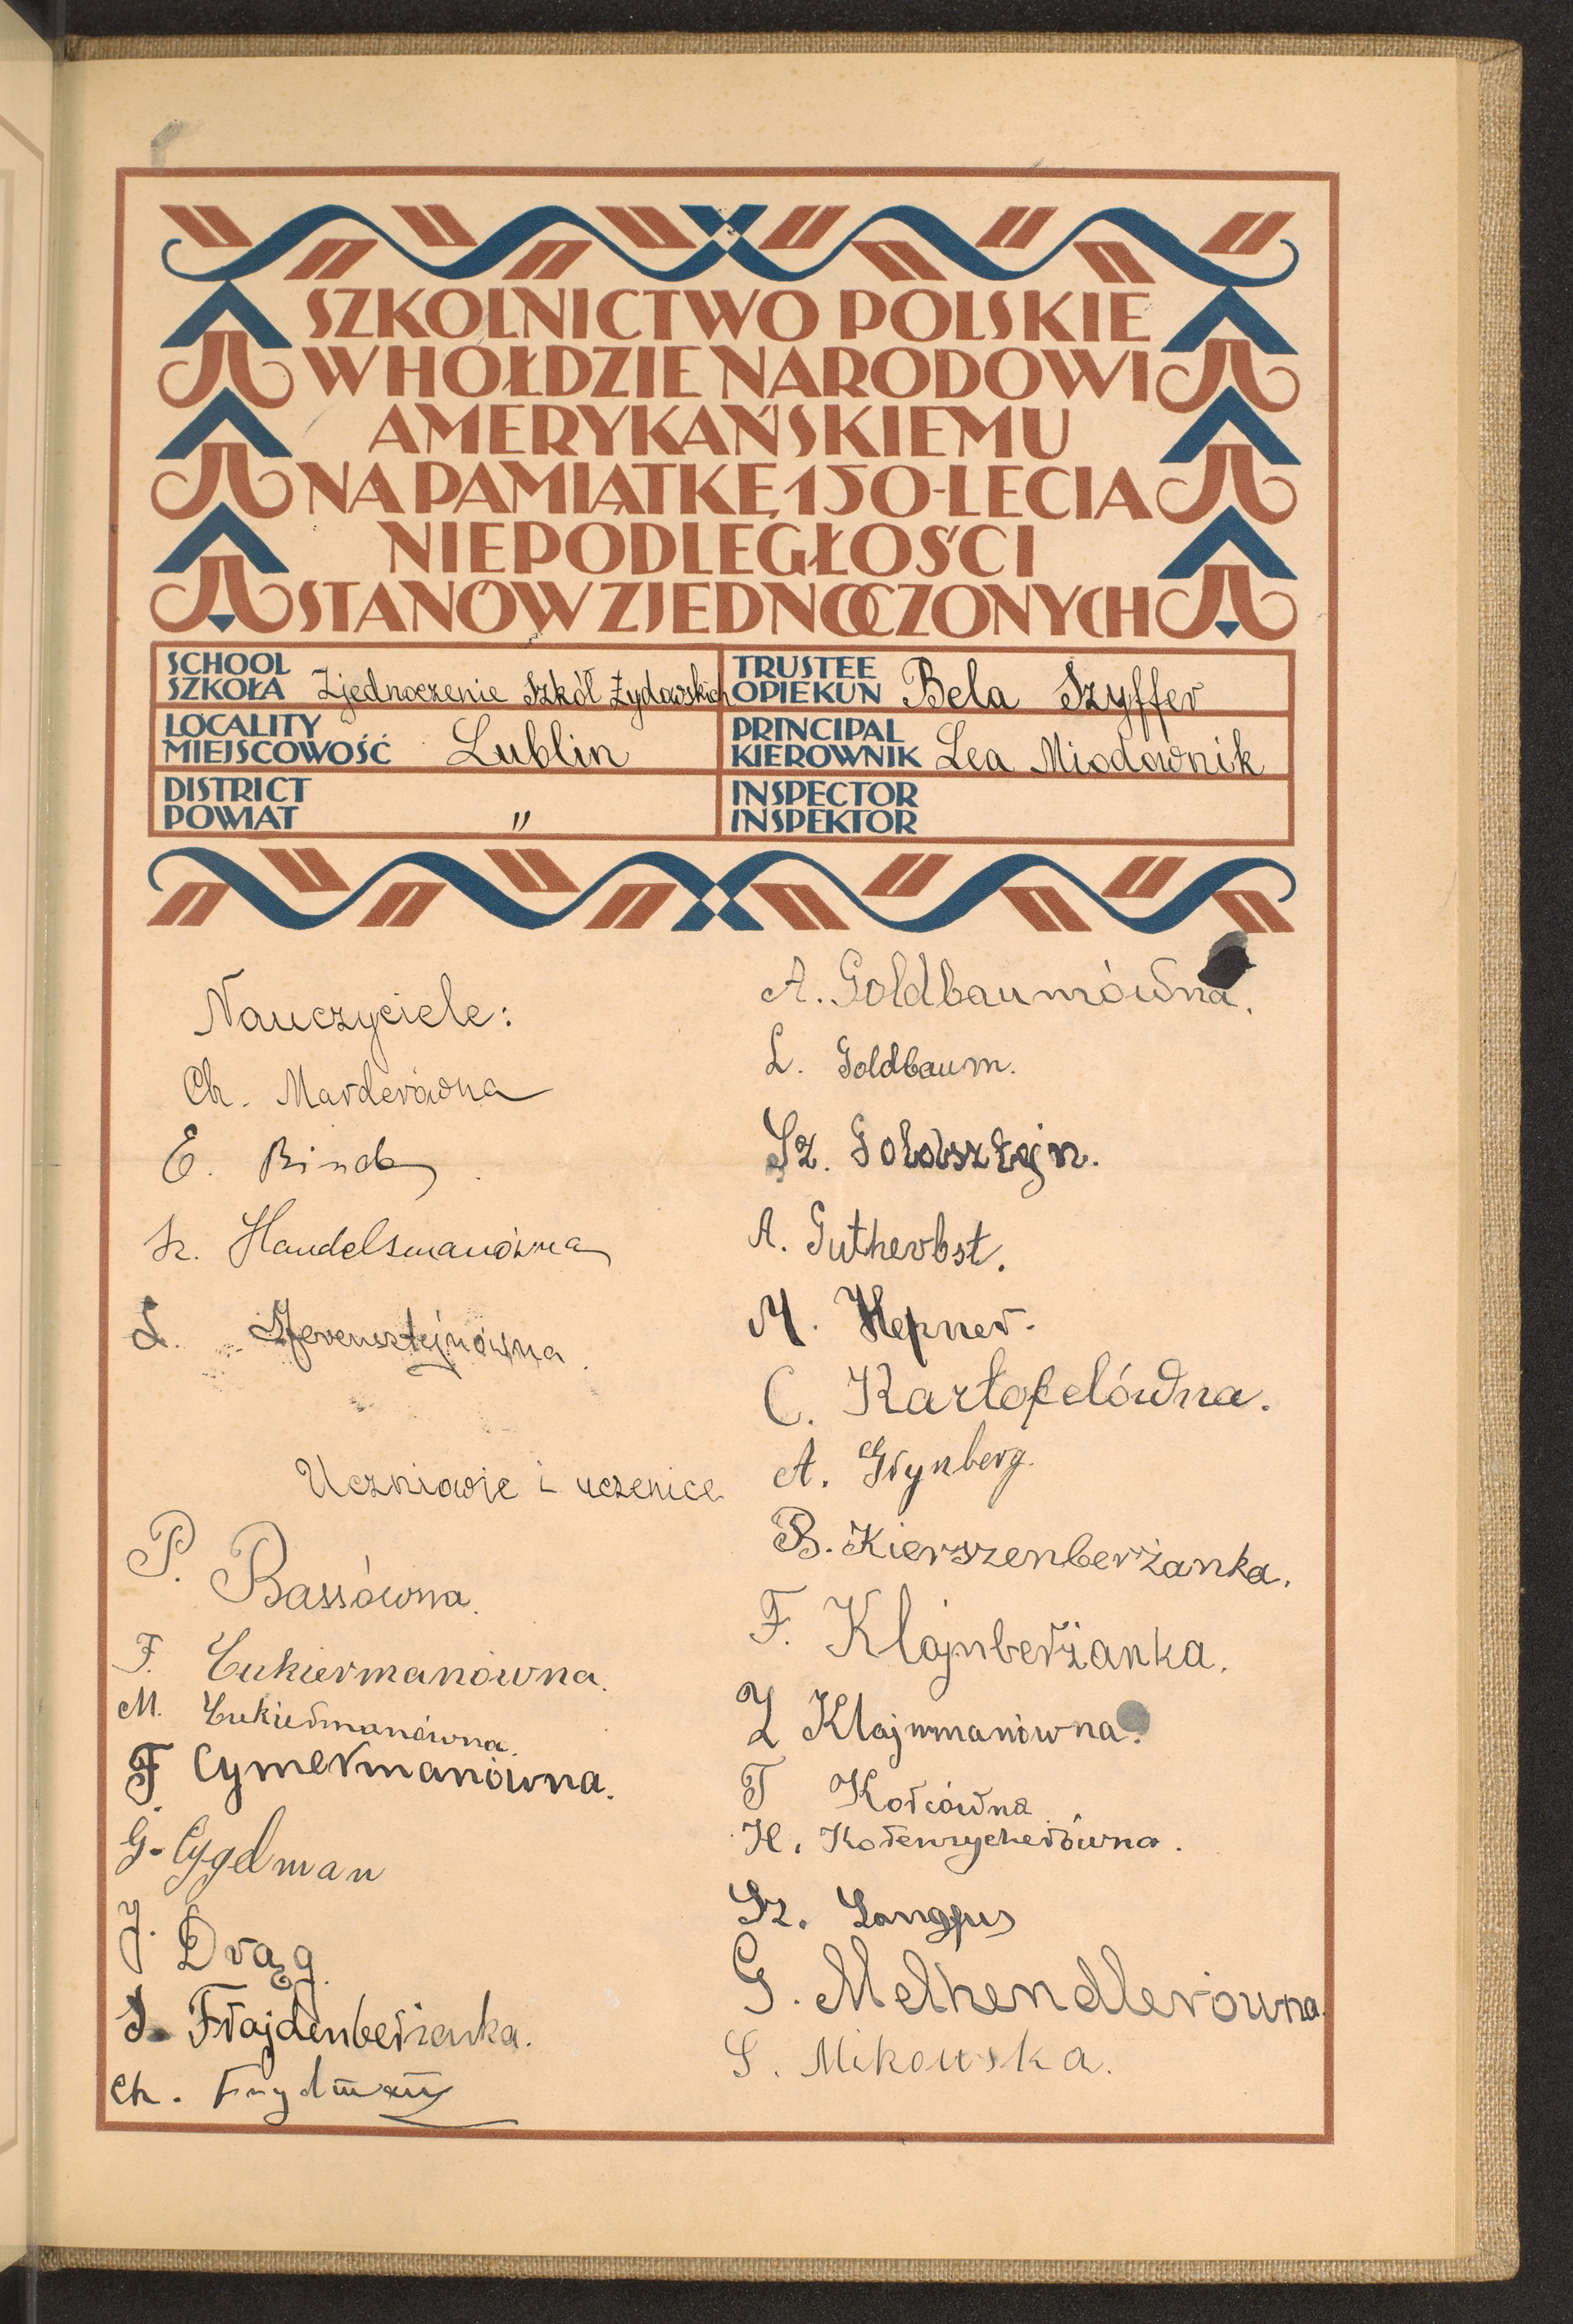 SZKOLNICTWO POLSKIE
W HOŁDZIE NARODOWI
AMERYKAŃSKIEMU
NA PAMIĄTKĘ 150-LECIA
NIEPODLEGŁOŚCI
STANÓW ZJEDNOCZONYCH
SCHOOL
SZKOŁA Zjednoczenie Szkół Żydowskich
TRUSTEE
OPIEKUN Bela Szyffer
LOCALITY
MIEJSCOWOŚĆ Lublin
PRINCIPAL
KIEROWNIK Lea Miodownik
DISTRICT
POWIAT "
INSPECTOR
INSPEKTOR
Nauczyciele:
Ch. Marderówna
E. Binder
Sz. Handelsmanówna
L.
Uczniowie i uczenice
P. Bassówna.
F. Cukiermanówna.
M. Cukiermanówna.
F. Cymermanówna.
G. Cygelman
J. Drąg.
S. Frajdenberżanka.
Ch. Frydman
A. Goldbaumówna.
L. Goldbaum.
Sz. Goldsztejn.
A. Gutherbst.
M. Hepner.
C. Kartofelówna.
A. Grynberg.
B. Kierszenberżanka.
F. Klajnberżanka.
Z Klajnmanówna.
T Korcówna
H. Korenwycherówna.
Sz. Langfus
G. Melhendlerówna.
S. Mikowska.